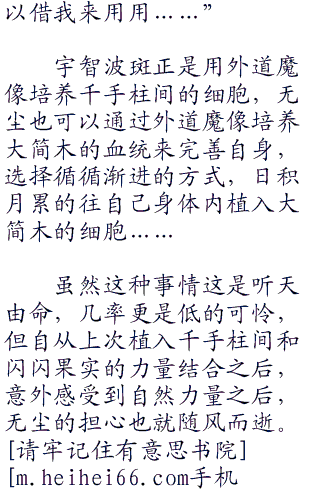 以借我来用用……”
宇智波斑正是用外道魔
像培养千手柱间的细胞，无
尘也可以通过外道魔像培养
大简木的血统来完善自身，
选择循循渐进的方式，日积
月累的往自己身体内植入大
简木的细胞……
虽然这种事情这是听天
由命，几率更是低的可怜，
但自从上次植入千手柱间和
闪闪果实的力量结合之后，
意外感受到自然力量之后，
无尘的担心也就随风而逝。
[请牢记住有意思书院]
[m.heihei66.com手机